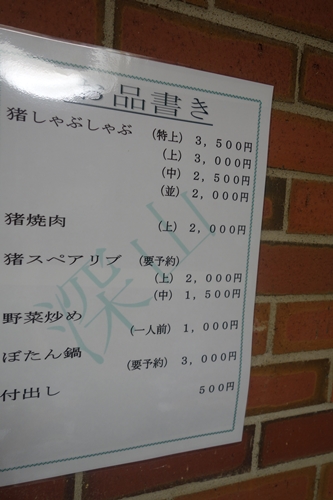 お品書き
猪しゃぶしゃぶ (特上) 3,500円
(上) 3,000円
(中) 2,500円
(並) 2,000円
猪焼肉 (上) 2,000円
猪スペアリブ (要予約)
(上) 2,000円
(中) 1,500円
野菜炒め (一人前) 1,000円
ぼたん鍋 (要予約) 3,000円
付出し 500円
深山